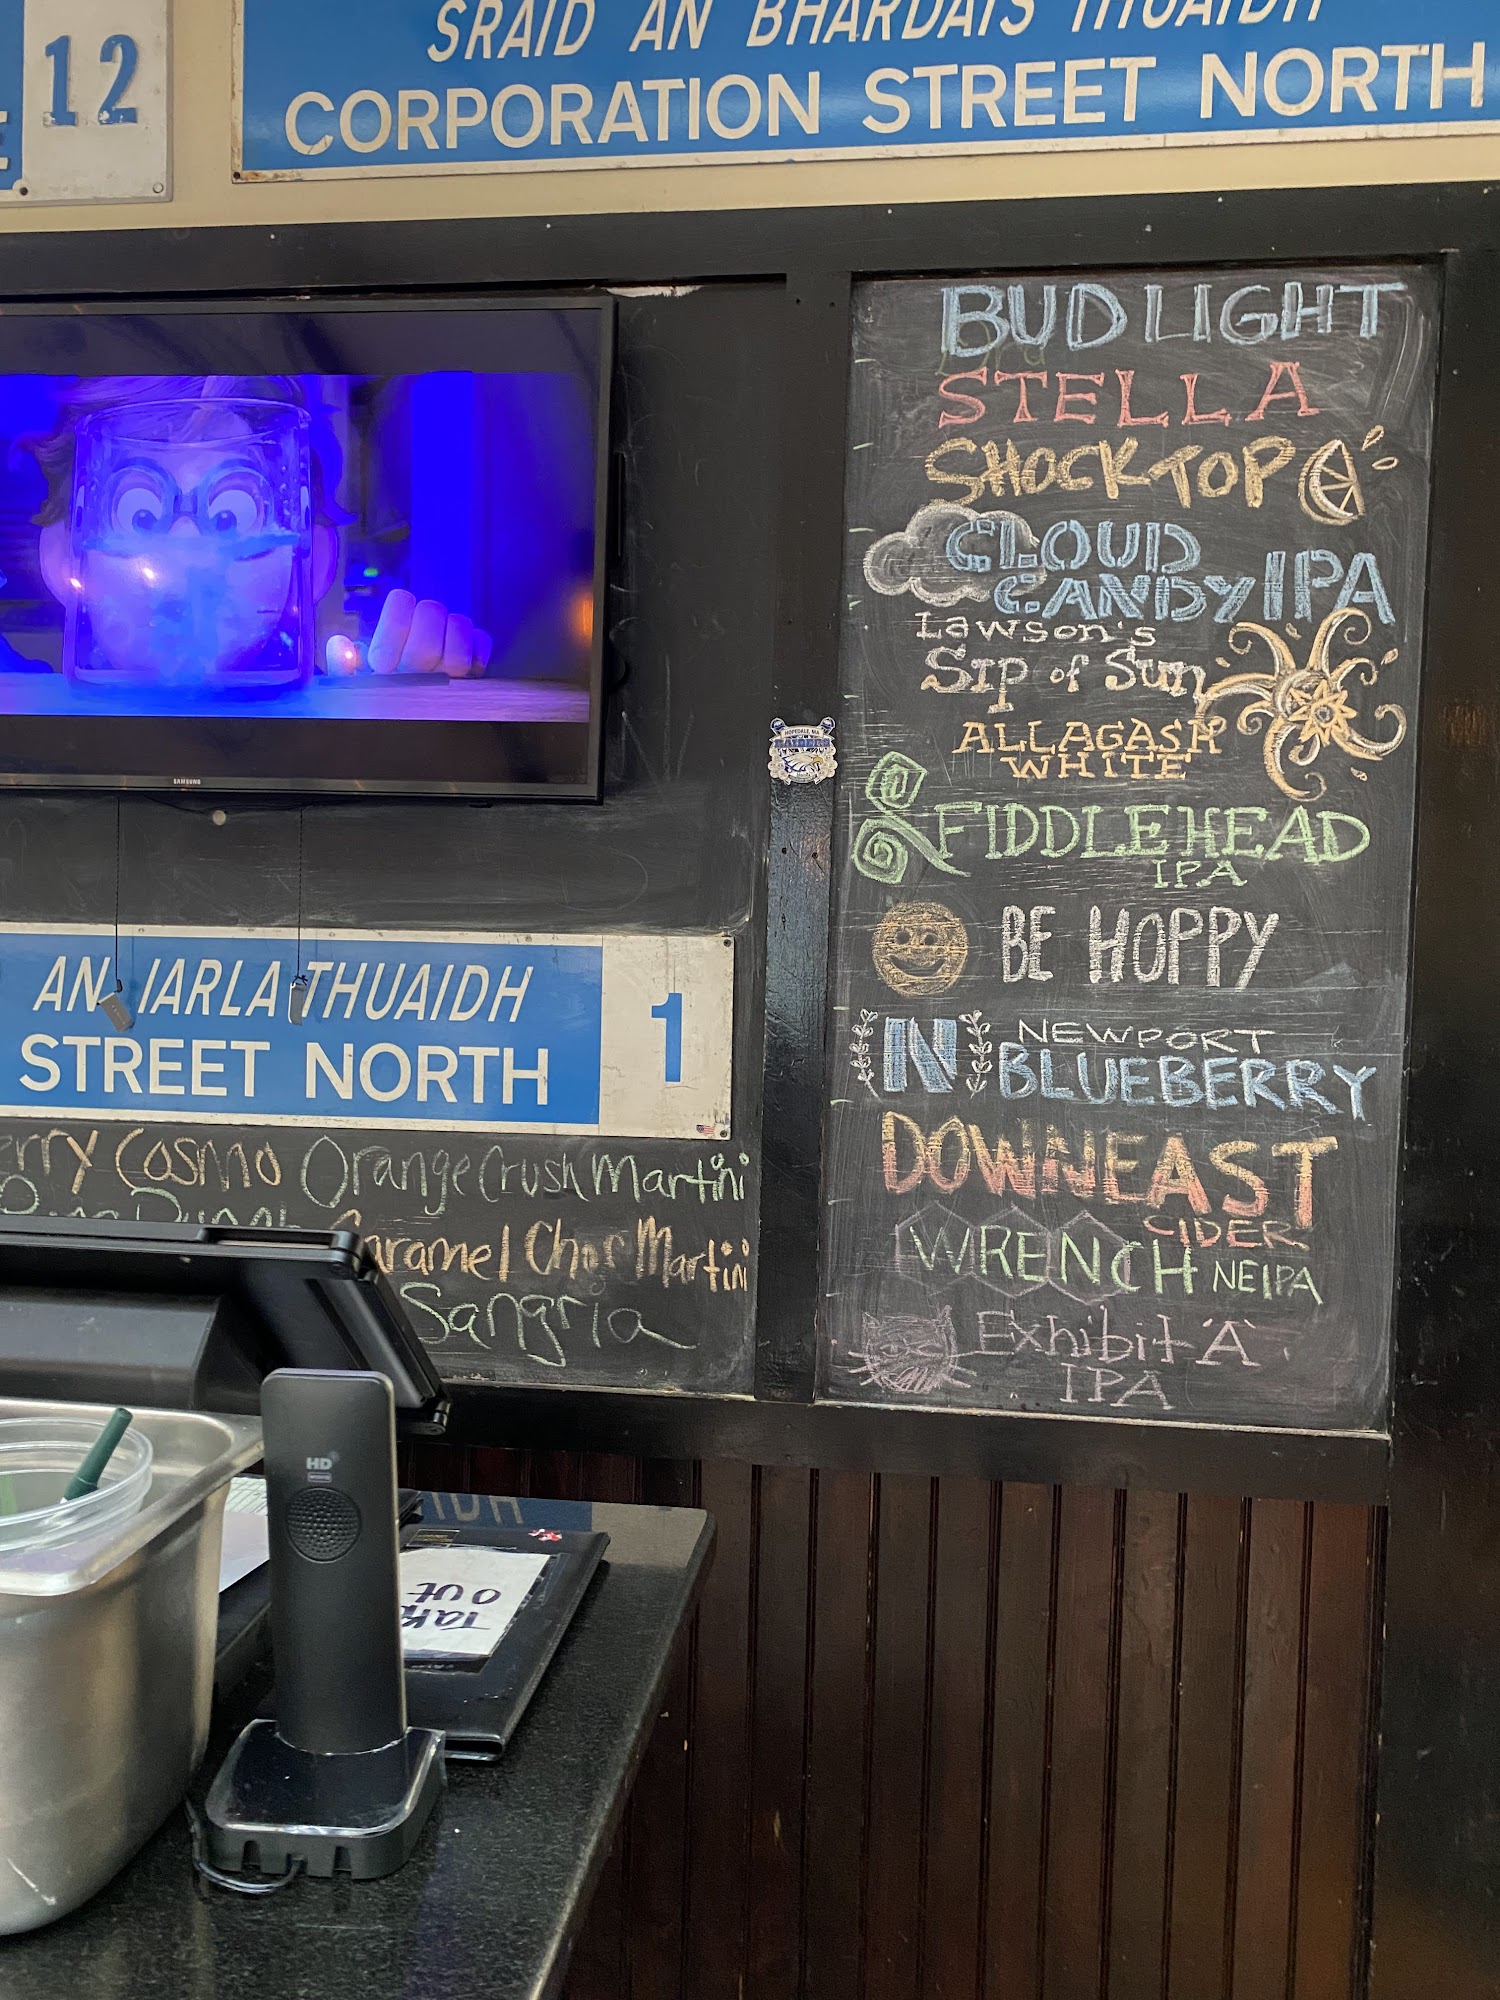 12
SRAID AN BHARDAIS THUAIDH
CORPORATION STREET NORTH
SAMSUNG
AN IARLA THUAIDH
STREET NORTH
1
Cosmo
Orange Crush Martini
Martini
Sangria
BUD LIGHT
STELLA
SHOCK TOP
CLOUD
CANDY IPA
Lawson's
Sip of Sun
ALLAGASH
WHITE
FIDDLEHEAD
IPA
BE HOPPY
N
NEWPORT
BLUEBERRY
DOWNEAST
CIDER
WRENCH NEIPA
Exhibit 'A'
IPA
HOPEDALE, MA
HD
Take
out